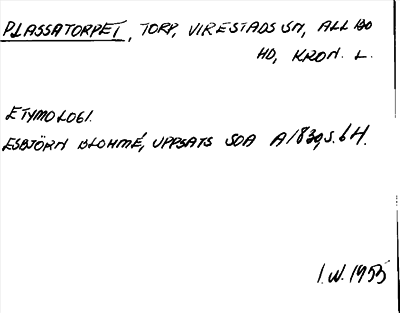 PLASSATORPET, TORP, VIRESTADS SN, ALLBO
HD, KRON. L.
ETYMOLOGI.
ESBJÖRN BLOHMÉ, UPPSATS SOA A1839, S. 6 H.
I.W. 1955